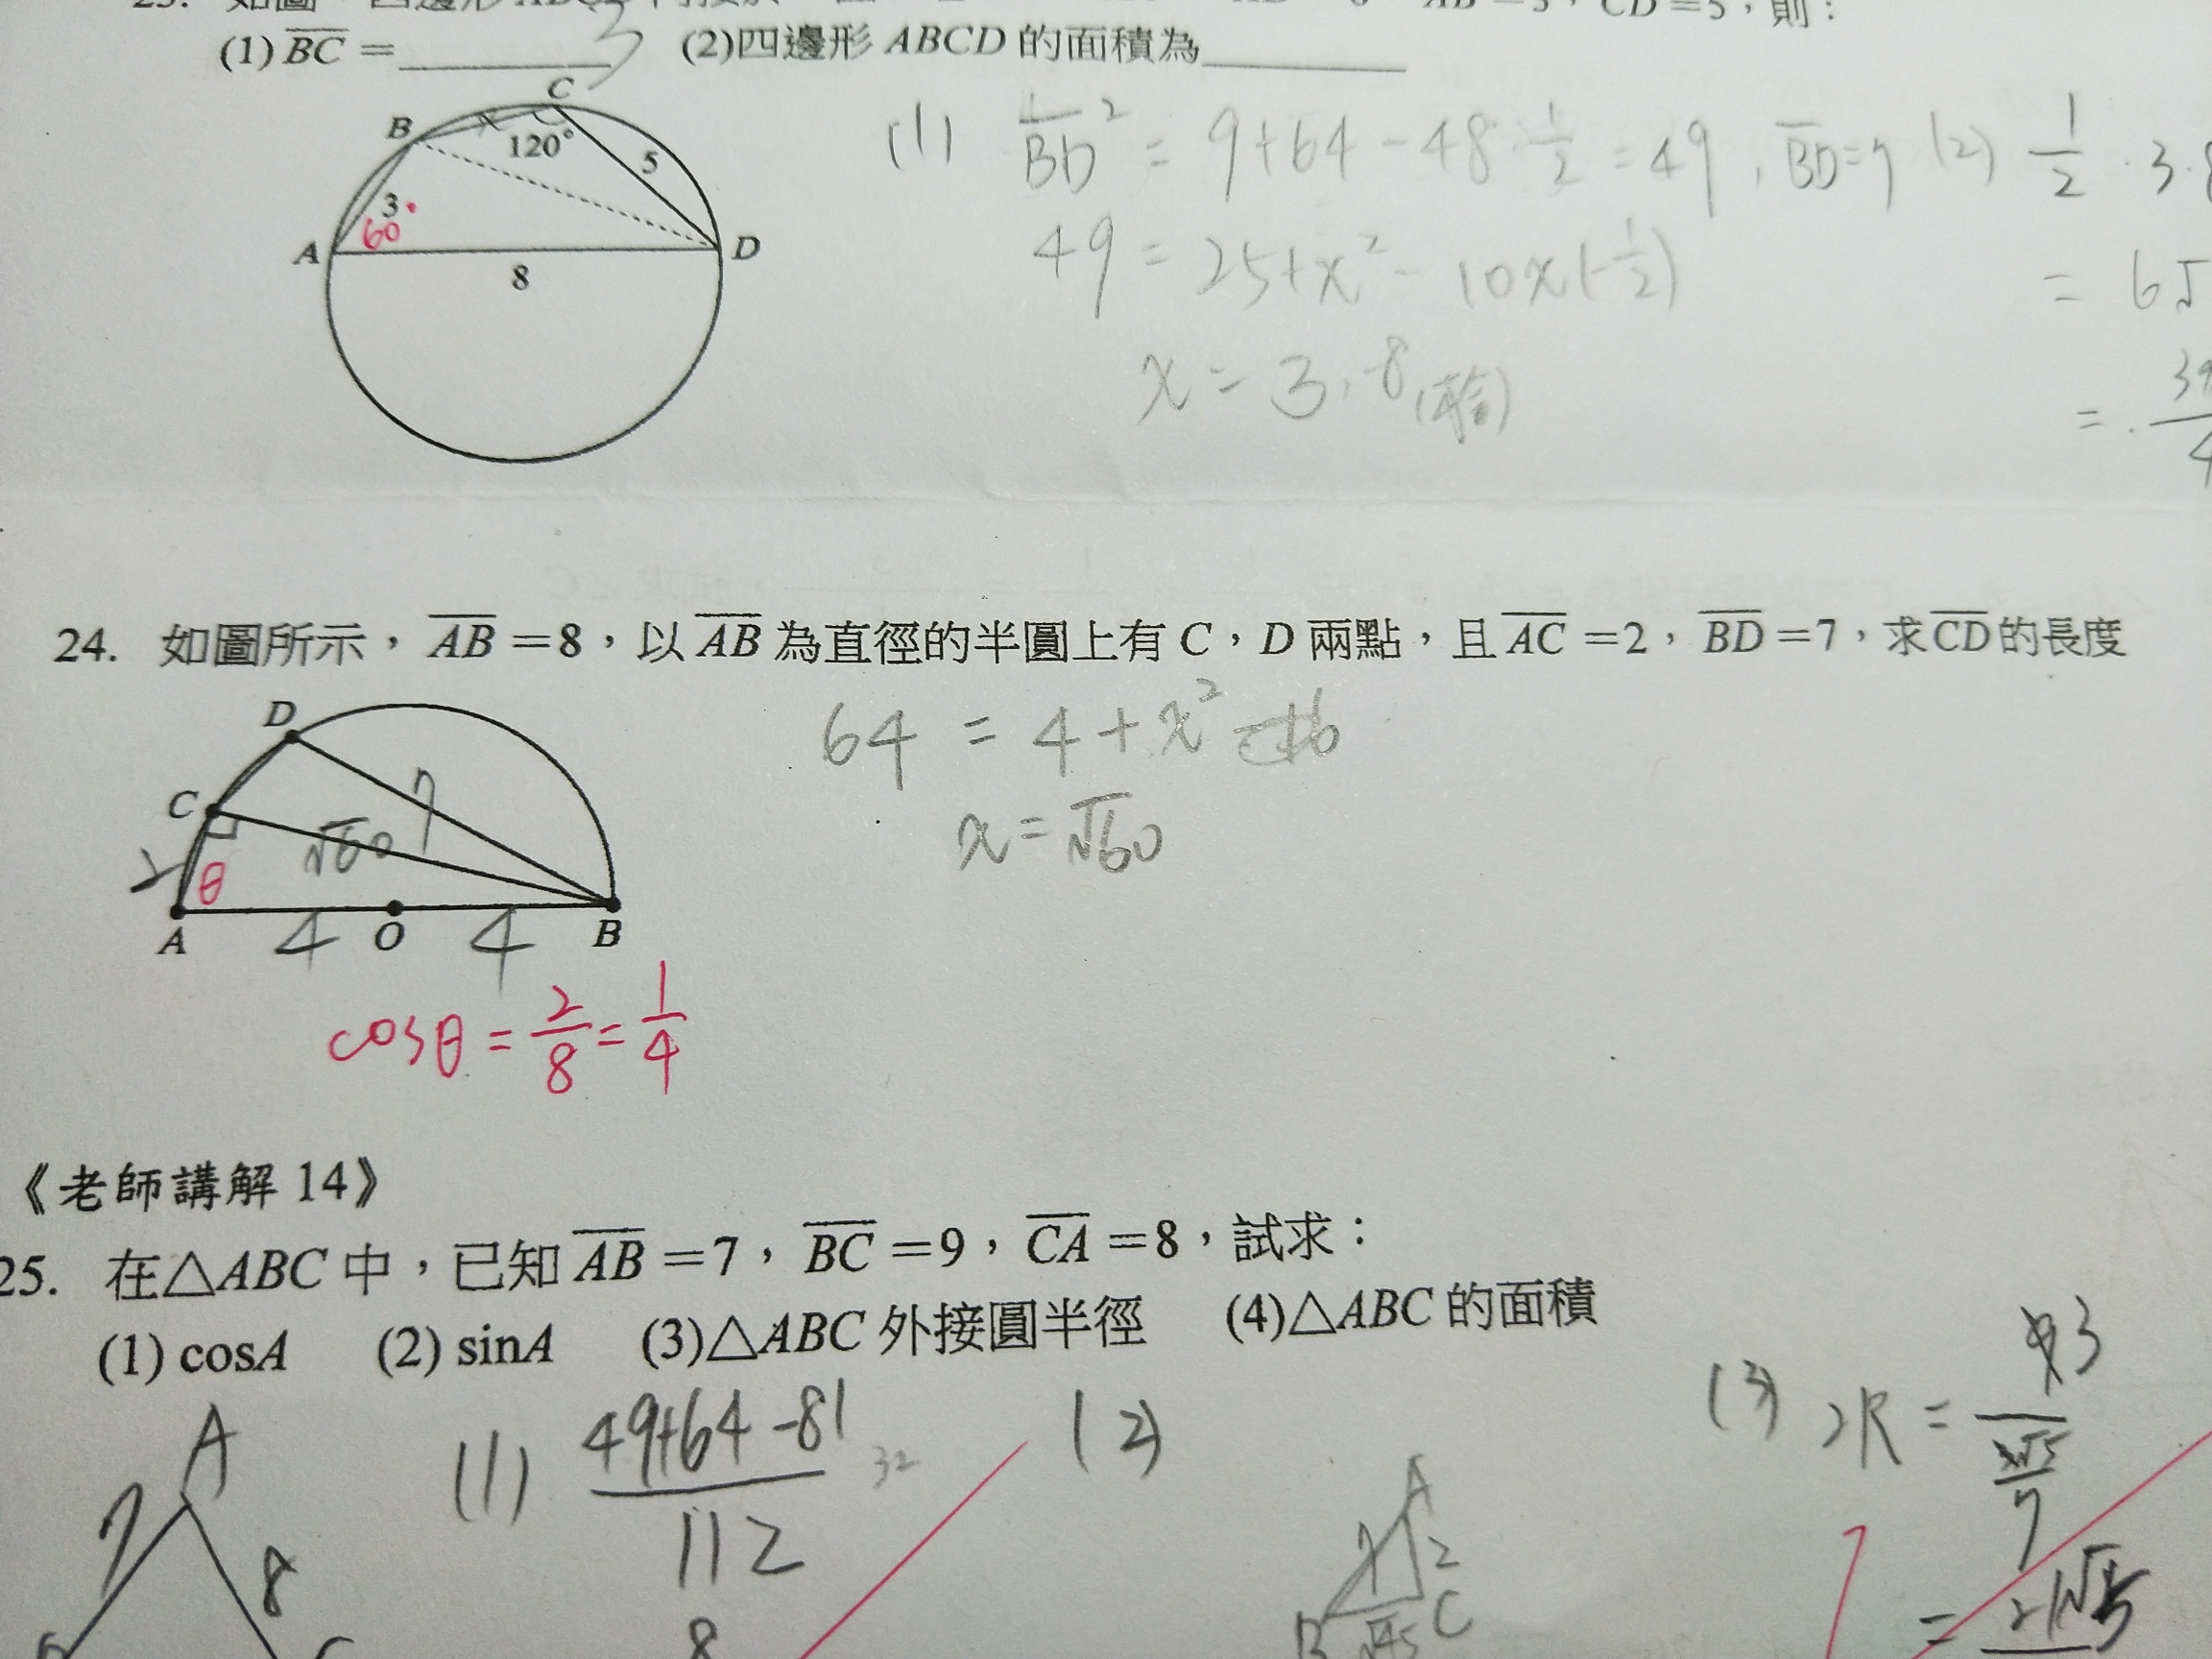 CD=5，則：
(1) BC = 3 (2)四邊形 ABCD 的面積為
C
B
x
120°
5
3
60°
A
D
8
(1) BD² = 9+64-48·1/2 = 49, BD=7
49 = 25+x²-10x(-1/2)
x = 3, -8 (不合)
(2) 1/2 · 3 · 8
24. 如圖所示，AB=8，以AB為直徑的半圓上有C，D兩點，且AC=2，BD=7，求CD的長度
D
C
7
√60
2
θ
A
4
O
4
B
64 = 4+x²
x = √60
cosθ = 2/8 = 1/4
《老師講解 14》
25. 在△ABC中，已知AB=7，BC=9，CA=8，試求：
(1) cosA (2) sinA (3)△ABC外接圓半徑 (4)△ABC的面積
A
7
8
(1) 49+64-81
112
32
8
(2)
A
7
2
B
√45
C
(3) 2R =
3
7